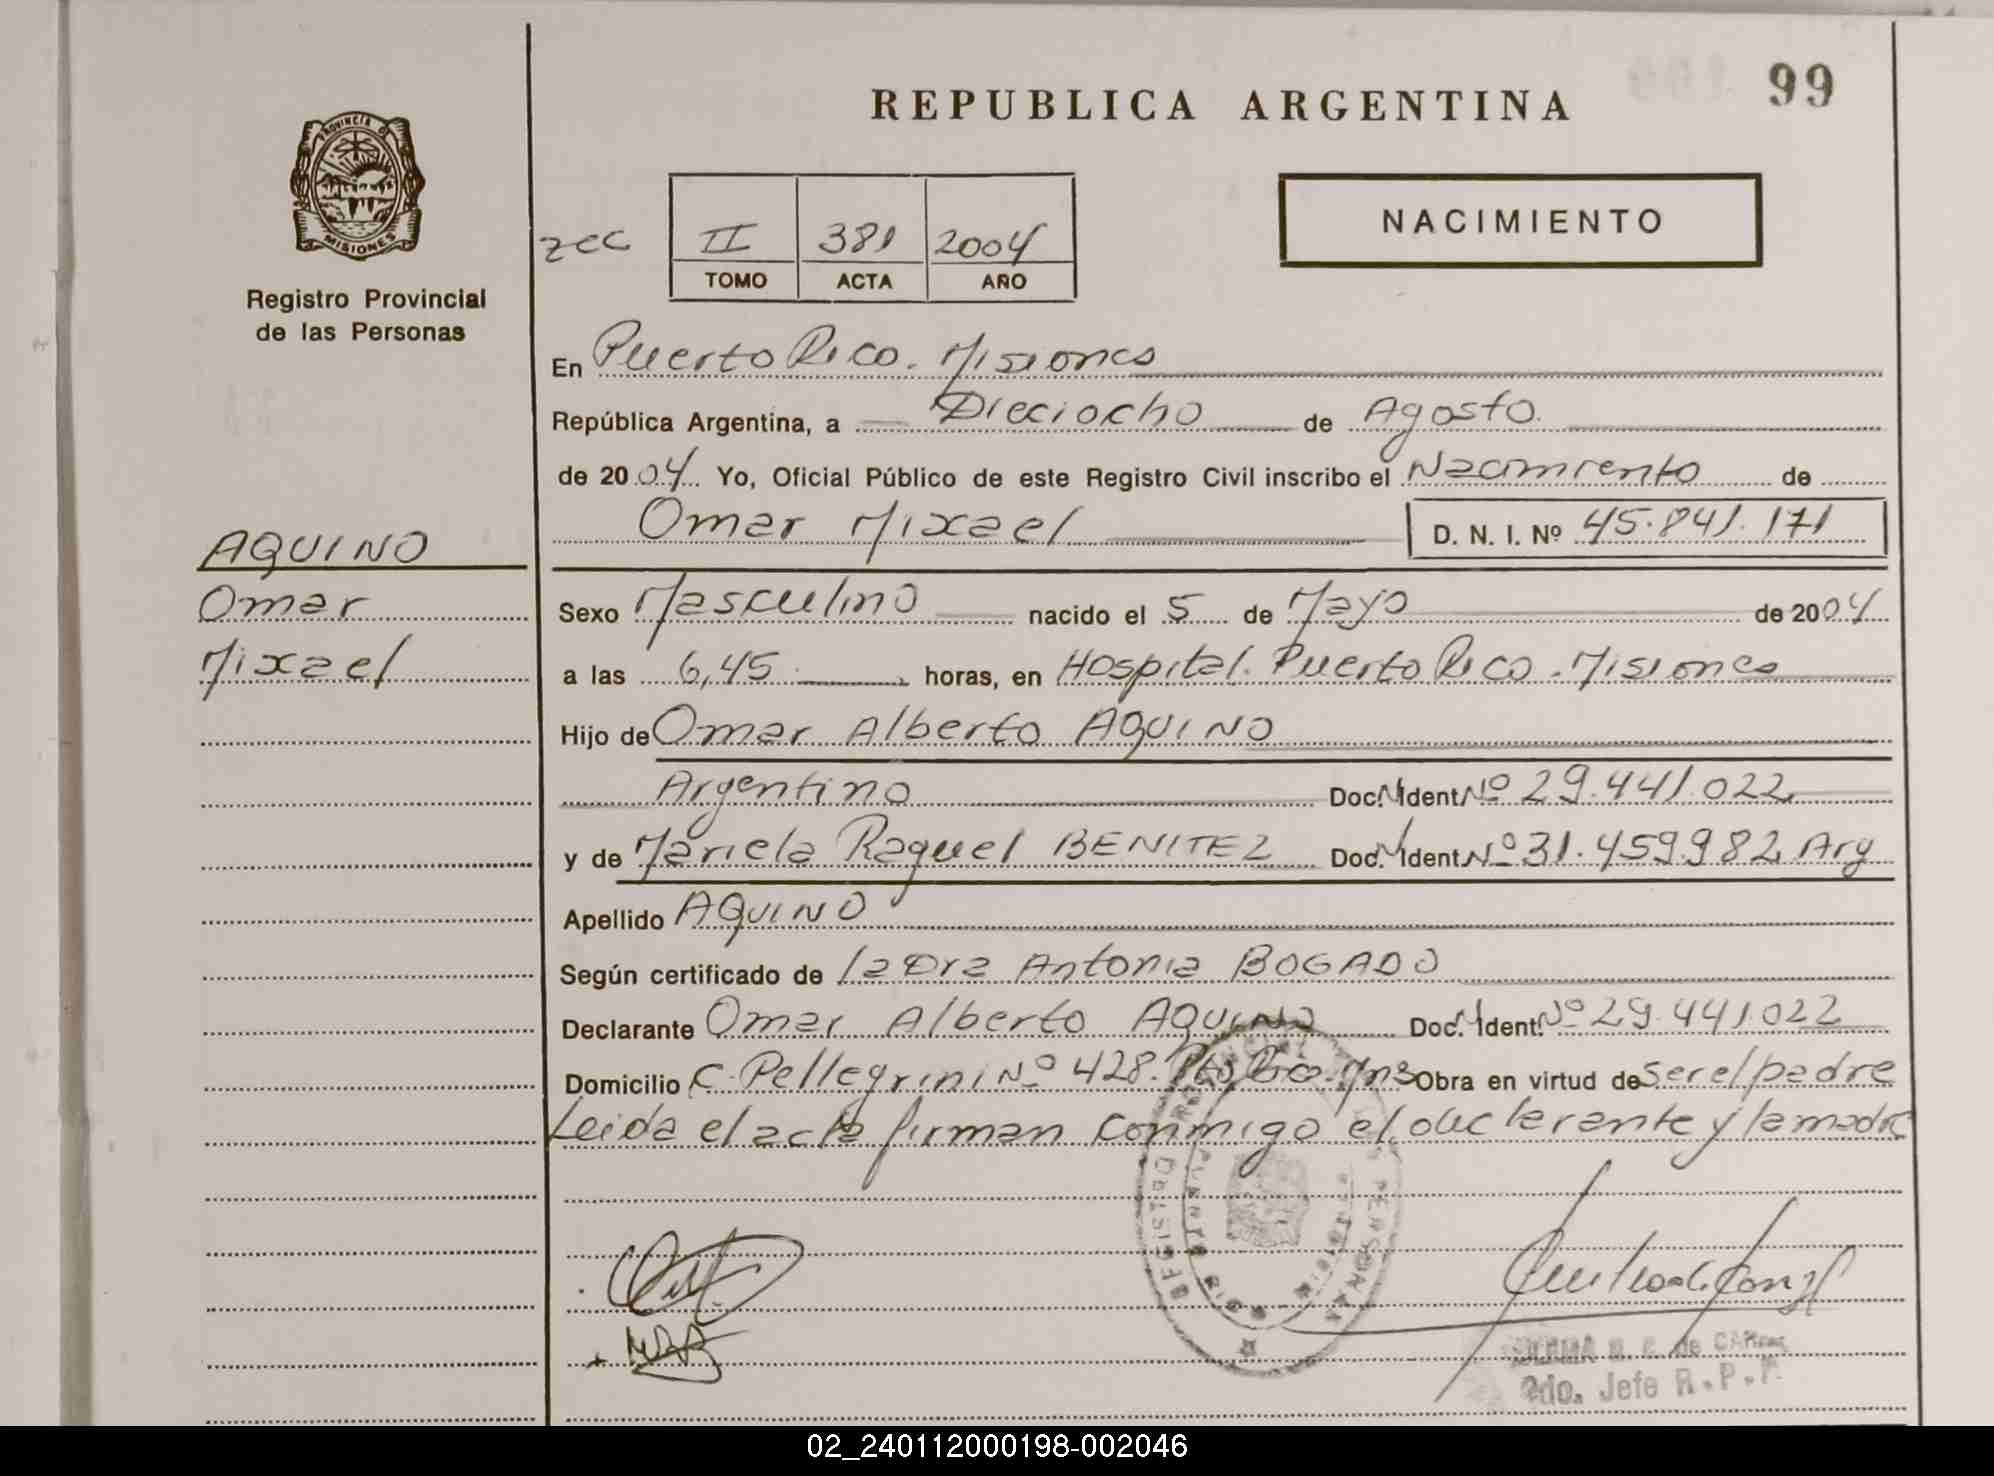 99
REPUBLICA ARGENTINA
PROVINCIA DE
MISIONES
Registro Provincial
de las Personas
II 381 2004
TOMO ACTA AÑO
NACIMIENTO
En Puerto Rico. Misiones
República Argentina, a Dieciocho de Agosto
de 2004 Yo, Oficial Público de este Registro Civil inscribo el Nacimiento de
Omar Mixael D. N. I. Nº 45.841.171
AQUINO
Omar
Mixael
Sexo Masculino nacido el 5 de Mayo de 2004
a las 6,45 horas, en Hospital. Puerto Rico. Misiones
Hijo de Omar Alberto AQUINO
Argentino Doc. N Ident. Nº 29.441.022
y de Mariela Raquel BENITEZ Doc. N Ident. Nº 31.459.982 Arg
Apellido AQUINO
Según certificado de la Dra Antonia BOGADO
Declarante Omar Alberto AQUINO Doc. N Ident. Nº 29.441.022
Domicilio C. Pellegrini Nº 428. Pto Rico. Mns Obra en virtud de ser el padre
Leida el acta firman conmigo el declarante y la madre
REGISTRO PERSONAS
de
2do. Jefe R.P.P.
02_240112000198-002046